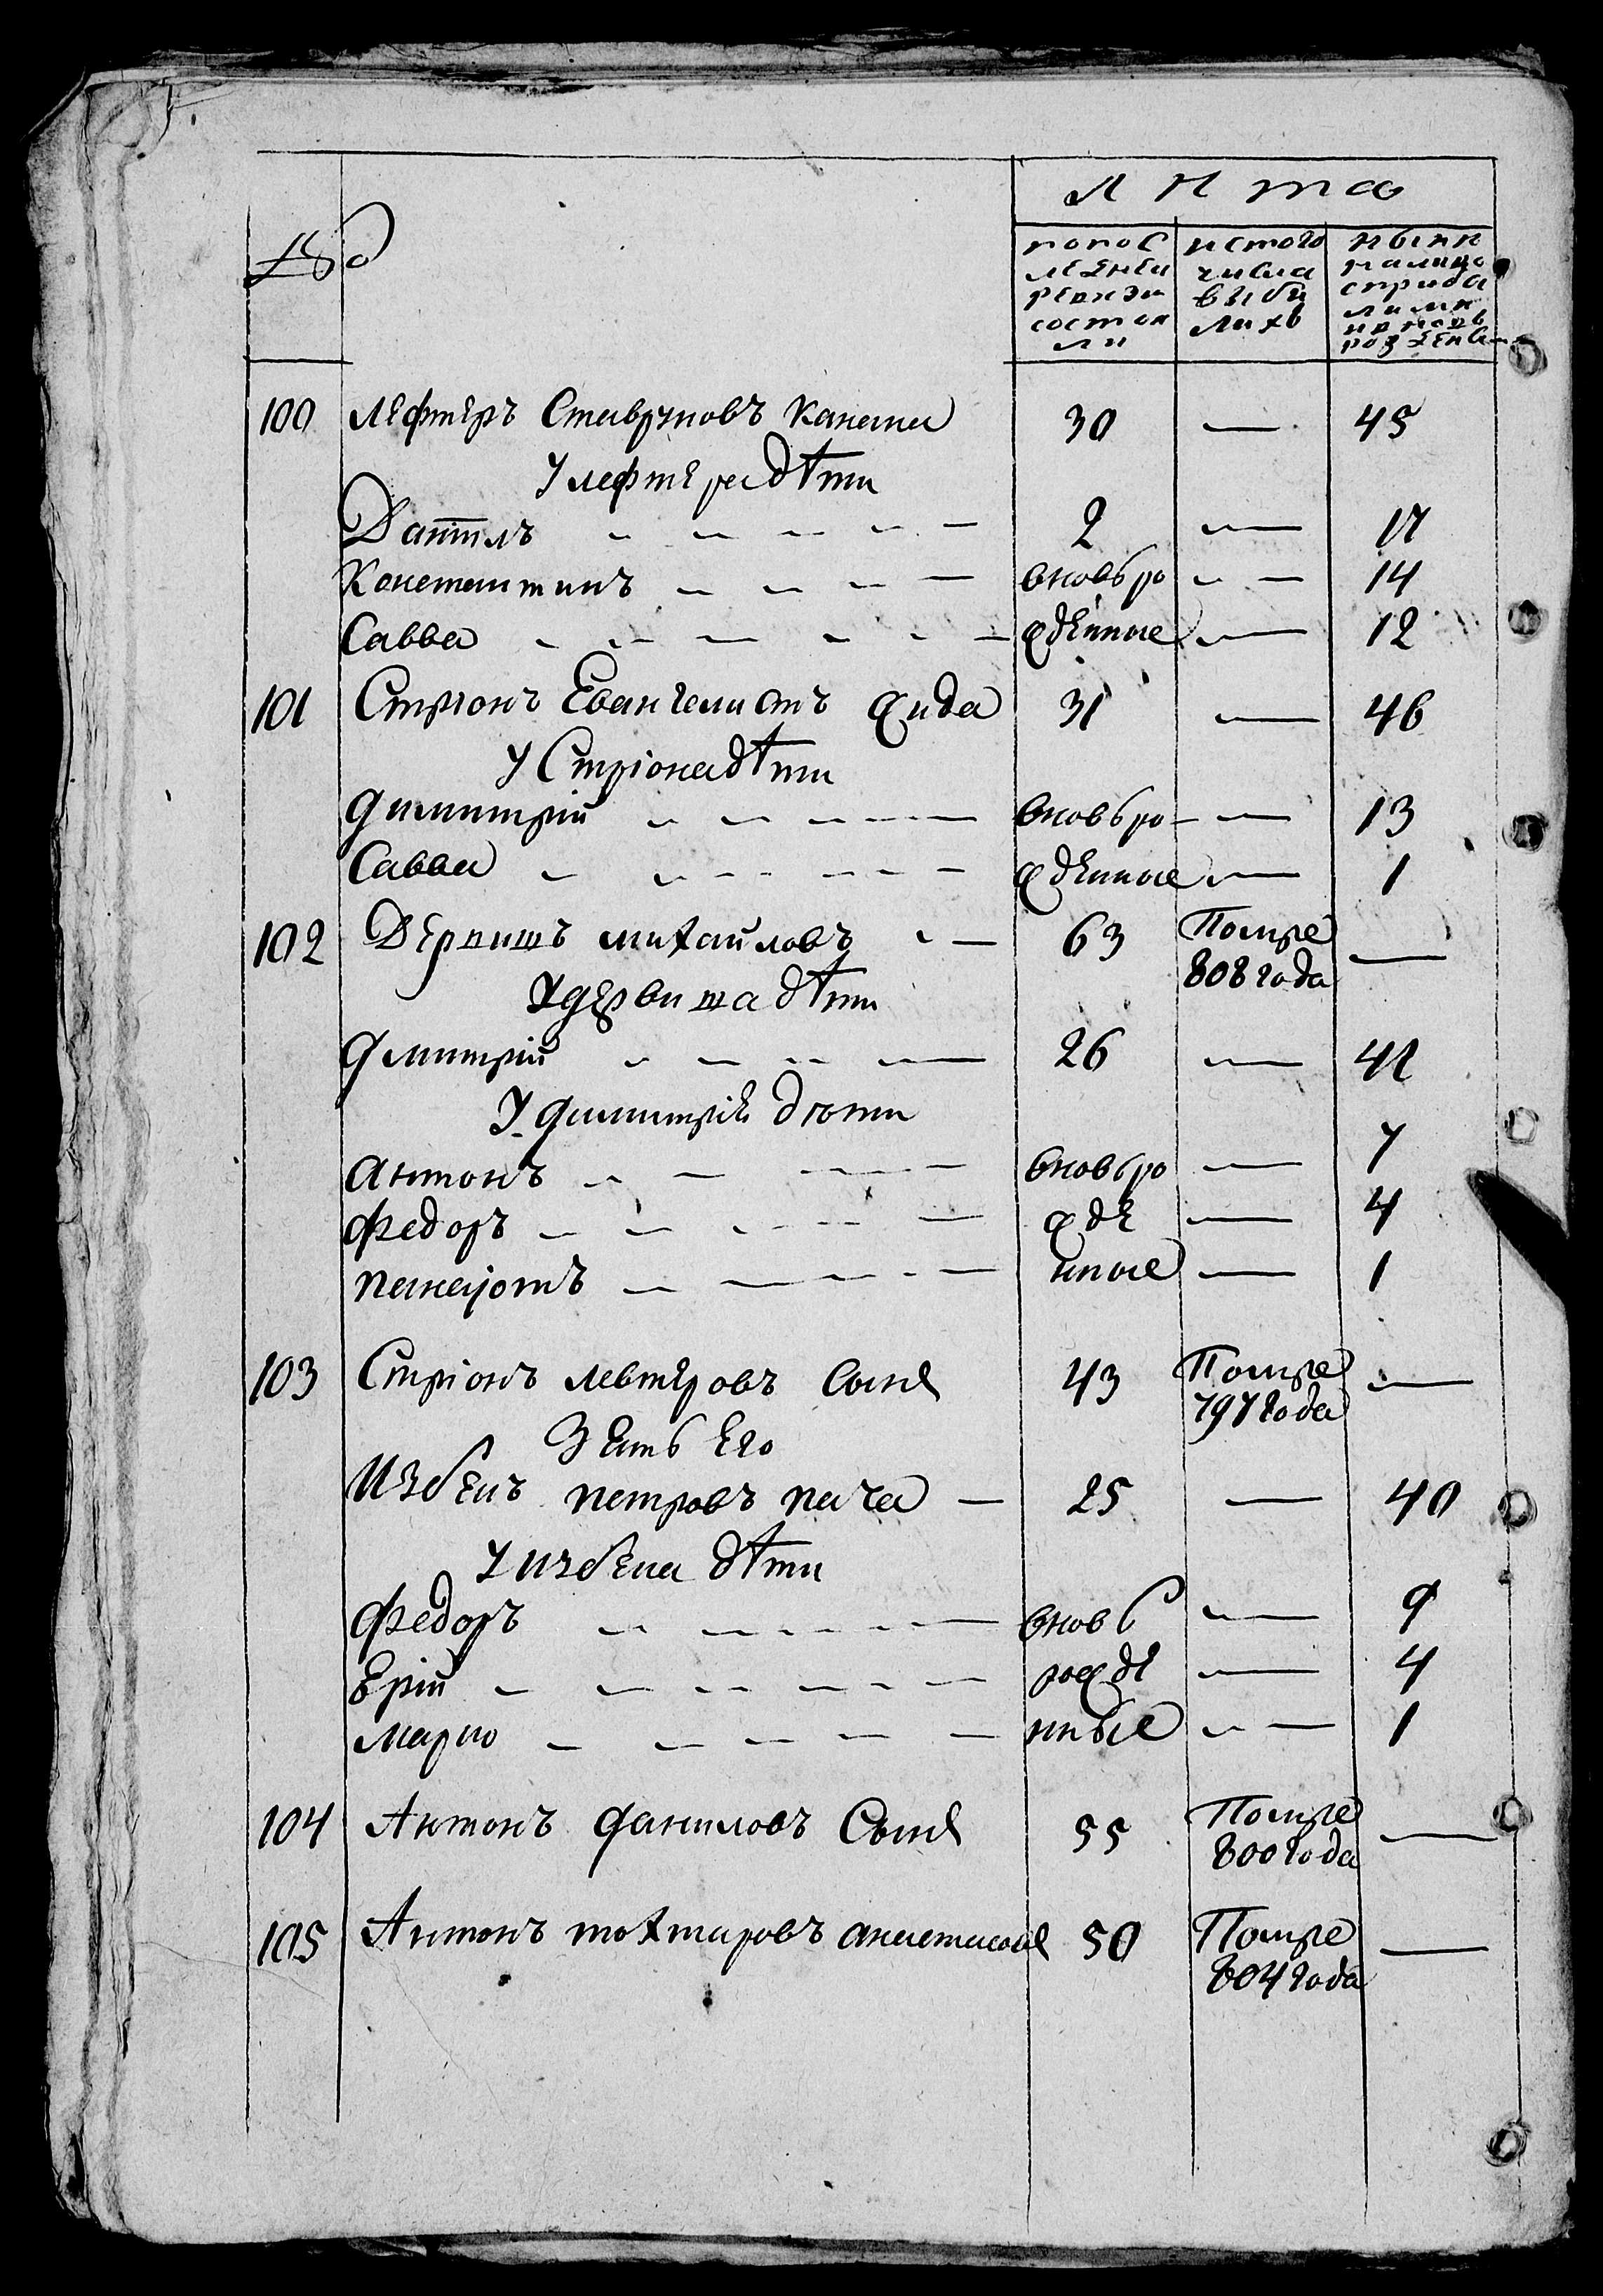 №
Лѣта
попос
ледней
ревизи
состоя
ли
истого
числа
выбы
лихъ
нынѣ
налицо
сприба
лыми
ивновь
рожден
100 Лефтеръ Ставриновъ 30 — 45
У лефтера дѣти
Даниилъ 2 — 17
Константинъ вновь ро — 14
Савва жденные — 12
101 Стріонъ Евангелистъ Жида 31 — 46
У Стріона дѣти
Димитрій вновь ро — 13
Савва жденные — 1
102 Дервишъ михайловъ — 63 Помре —
808 года
У дервиша дѣти
Дмитрій 26 — 41
У димитрія дѣти
Антонъ вновь ро — 7
Федоръ жде — 4
панаіотъ нные — 1
103 Стріонъ левтеровъ Сынъ 43 Помре —
797 года
Зять Его
Избенъ петровъ пача — 25 — 40
У избена дѣти
Федоръ вновь — 9
Ерій рожде — 4
Марио нные — 1
104 Антонъ даниловъ Сынъ 55 Помре —
800 года
105 Антонъ тохтаровъ 50 Помре —
804 года